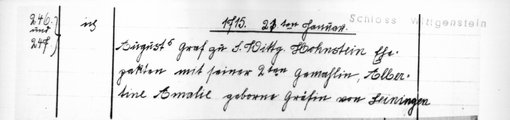 246. 1715. 23ten Januar. Schloss Wittgenstein
und ich
247. Augusts Graf zu S. Wittg. Hohnstein Ehe-
pakten mit seiner 2ten Gemahlin, Alber-
tine Amalie geborne Gräfin von Leiningen